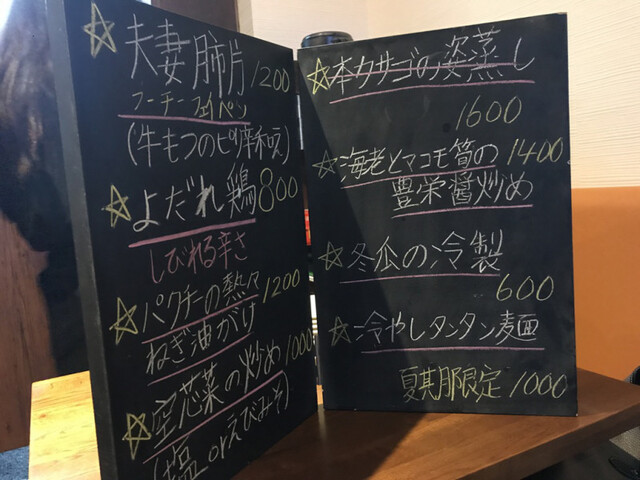 ☆夫妻肺片 1200
フーチーフェイペン
(牛もつのピリ辛和え)
☆よだれ鶏 800
しびれる辛さ
☆パクチーの熱々 1200
ねぎ油がけ
☆空芯菜の炒め 1000
(塩orえびみそ)
☆本カサゴの姿蒸し
1600
☆海老とマコモ筍の 1400
豊栄醤炒め
☆冬瓜の冷製
600
☆冷やしタンタン麺
夏期限定 1000